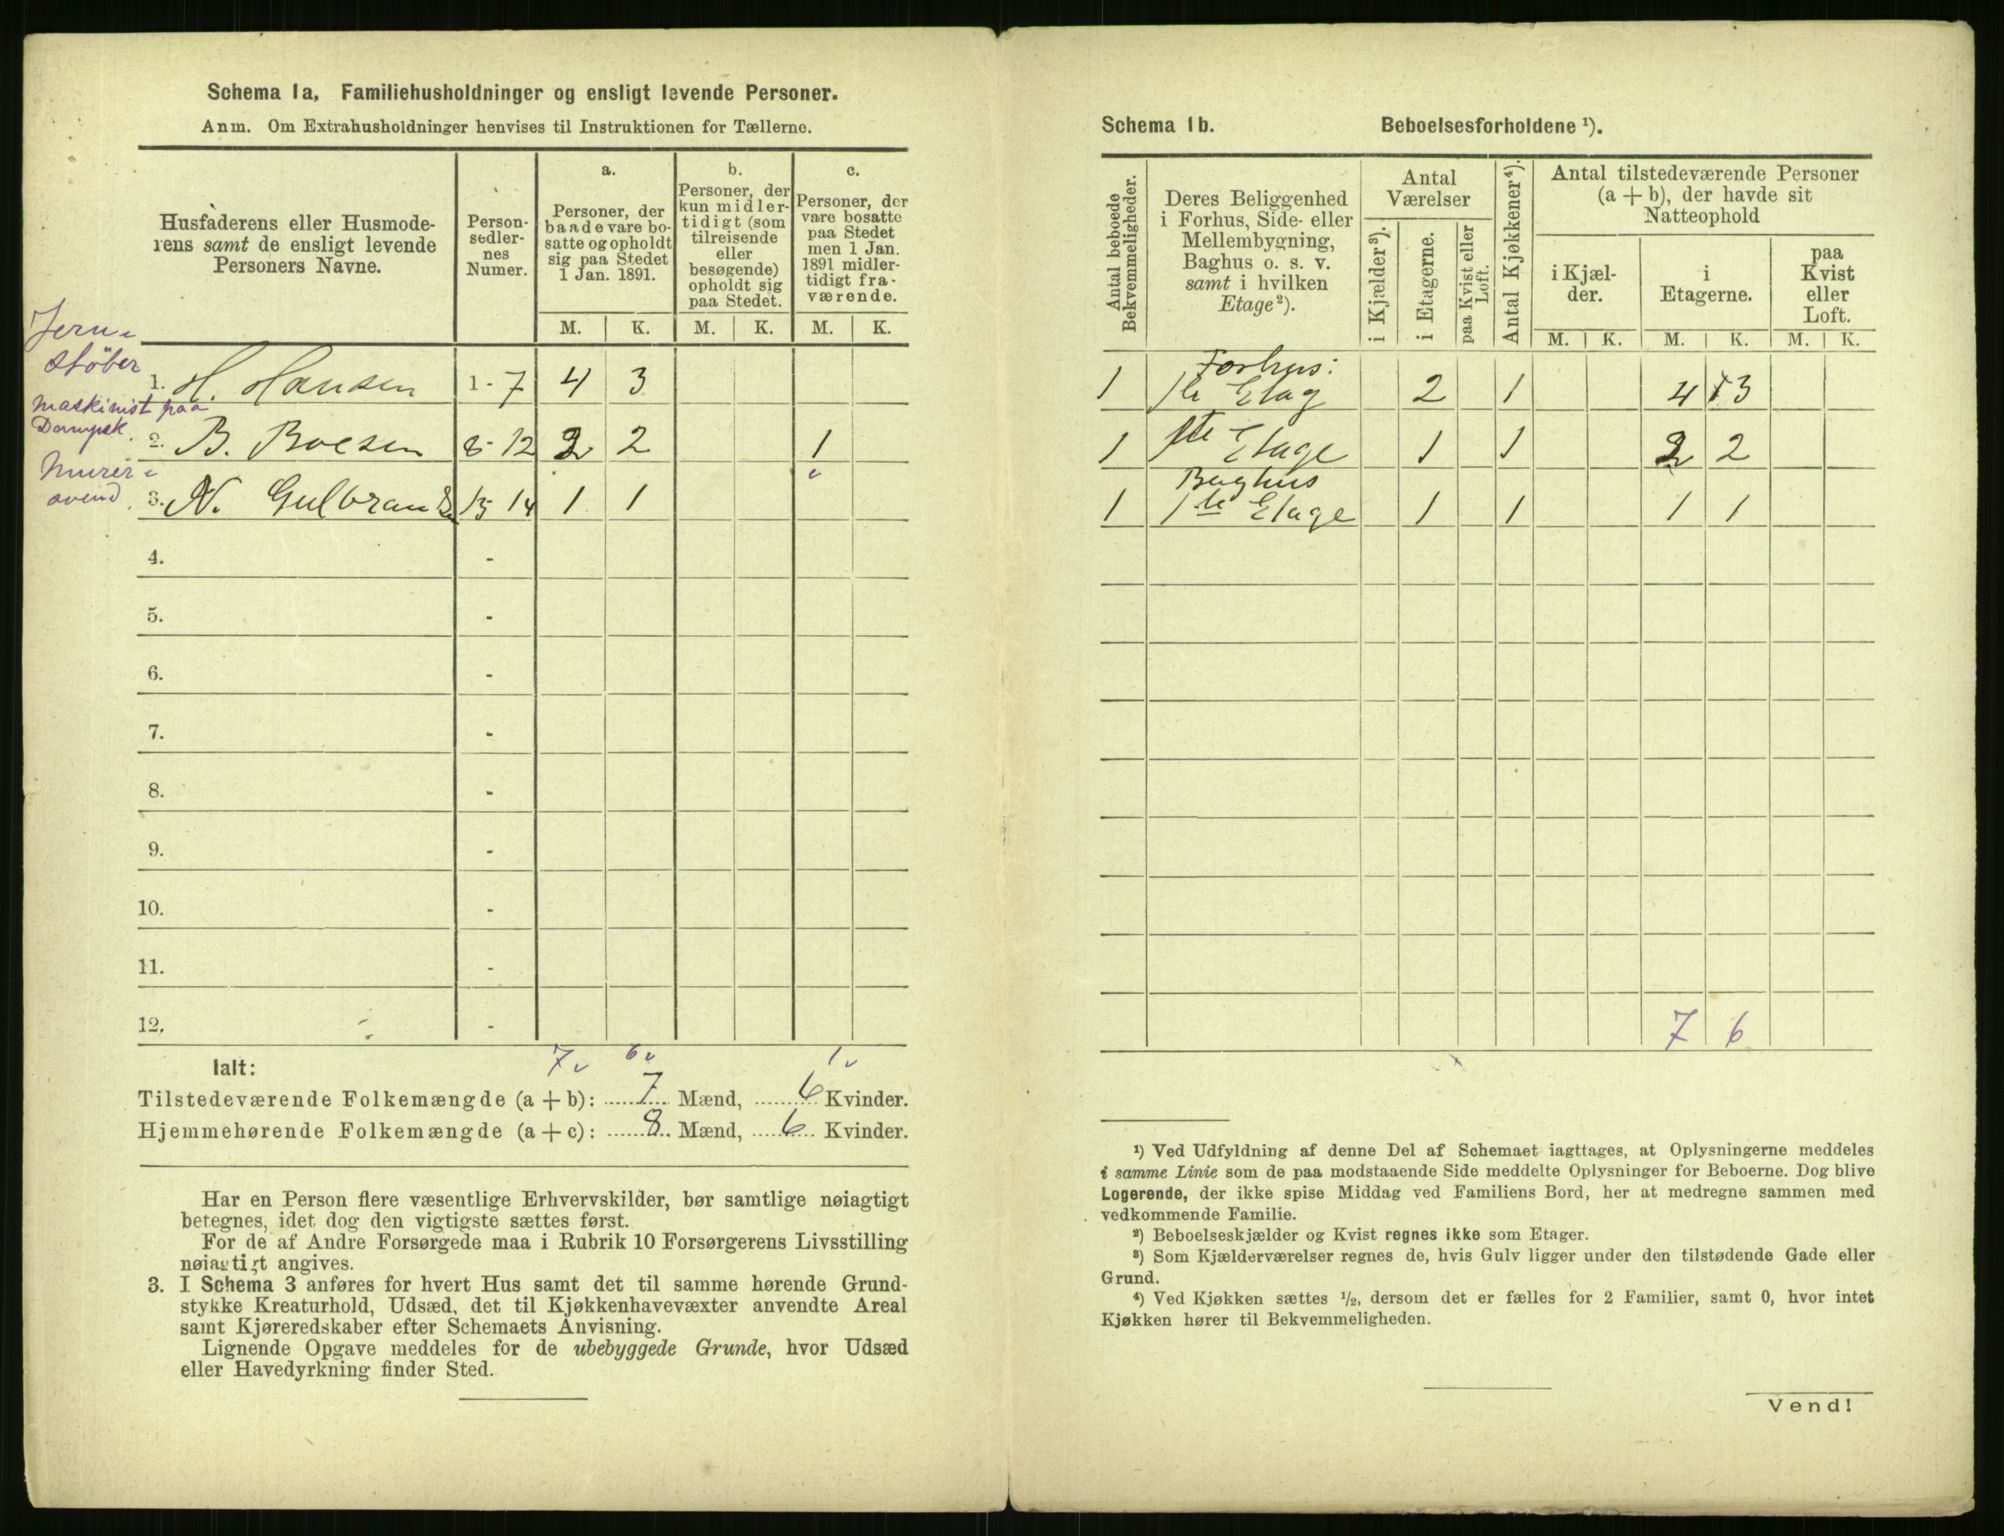 Schema 1a. Familiehusholdninger og ensligt levende Personer.
Anm. Om Extrahusholdninger henvises til Instruktionen for Tællerne.
Husfaderens eller Husmode-
rens samt de ensligt levende
Personers Navne.
Person-
sedler-
nes
Numer.
a.
Personer, der
baade vare bo-
satte og opholdt
sig paa Stedet
1 Jan. 1891.
b.
Personer, der
kun midler-
tidigt (som
tilreisende
eller
besøgende)
opholdt sig
paa Stedet.
c.
Personer, der
vare bosatte
paa Stedet
men 1 Jan.
1891 midler-
tidigt fra-
værende.
M. K. M. K. M. K.
Jern-
støber
1. H. Hansen 1 - 7 4 3
Maskinist paa
Dampsk.
2. B. Boesen 8 - 12 2 2 1
Murer-
svend
3. N. Gulbrands 13 14 1 1
4. -
5. -
6. -
7. -
8. -
9. -
10. -
11. -
12. -
Ialt: 7 6 1
Tilstedeværende Folkemængde (a + b): 7 Mænd, 6 Kvinder.
Hjemmehørende Folkemængde (a + c): 8 Mænd, 6 Kvinder.
Har en Person flere væsentlige Erhvervskilder, bør samtlige nøiagtigt
betegnes, idet dog den vigtigste sættes først.
For de af Andre Forsørgede maa i Rubrik 10 Forsørgerens Livsstilling
nøiagtigt angives.
3. I Schema 3 anføres for hvert Hus samt det til samme hørende Grund-
stykke Kreaturhold, Udsæd, det til Kjøkkenhavevæxter anvendte Areal
samt Kjøreredskaber efter Schemaets Anvisning.
Lignende Opgave meddeles for de ubebyggede Grunde, hvor Udsæd
eller Havedyrkning finder Sted.
Schema 1b. Beboelsesforholdene ¹).
Antal beboede
Bekvemmeligheder.
Deres Beliggenhed
i Forhus, Side- eller
Mellembygning,
Baghus o. s. v.
samt i hvilken
Etage²).
Antal
Værelser
i Kjælder³).
i Etagerne.
paa Kvist eller
Loft.
Antal Kjøkkener⁴).
Antal tilstedeværende Personer
(a + b), der havde sit
Natteophold
i Kjæl-
der.
i
Etagerne.
paa
Kvist
eller
Loft.
M. K. M. K. M. K.
Forhus:
1 1te Etag 2 1 4 3
1 1te Etage 1 1 2 2
Baghus
1 1te Etage 1 1 1 1
7 6
¹) Ved Udfyldning af denne Del af Schemaet iagttages, at Oplysningerne meddeles
i samme Linie som de paa modstaaende Side meddelte Oplysninger for Beboerne. Dog blive
Logerende, der ikke spise Middag ved Familiens Bord, her at medregne sammen med
vedkommende Familie.
²) Beboelseskjælder og Kvist regnes ikke som Etager.
³) Som Kjælderværelser regnes de, hvis Gulv ligger under den tilstødende Gade eller
Grund.
⁴) Ved Kjøkken sættes ½, dersom det er fælles for 2 Familier, samt 0, hvor intet
Kjøkken hører til Bekvemmeligheden.
Vend!